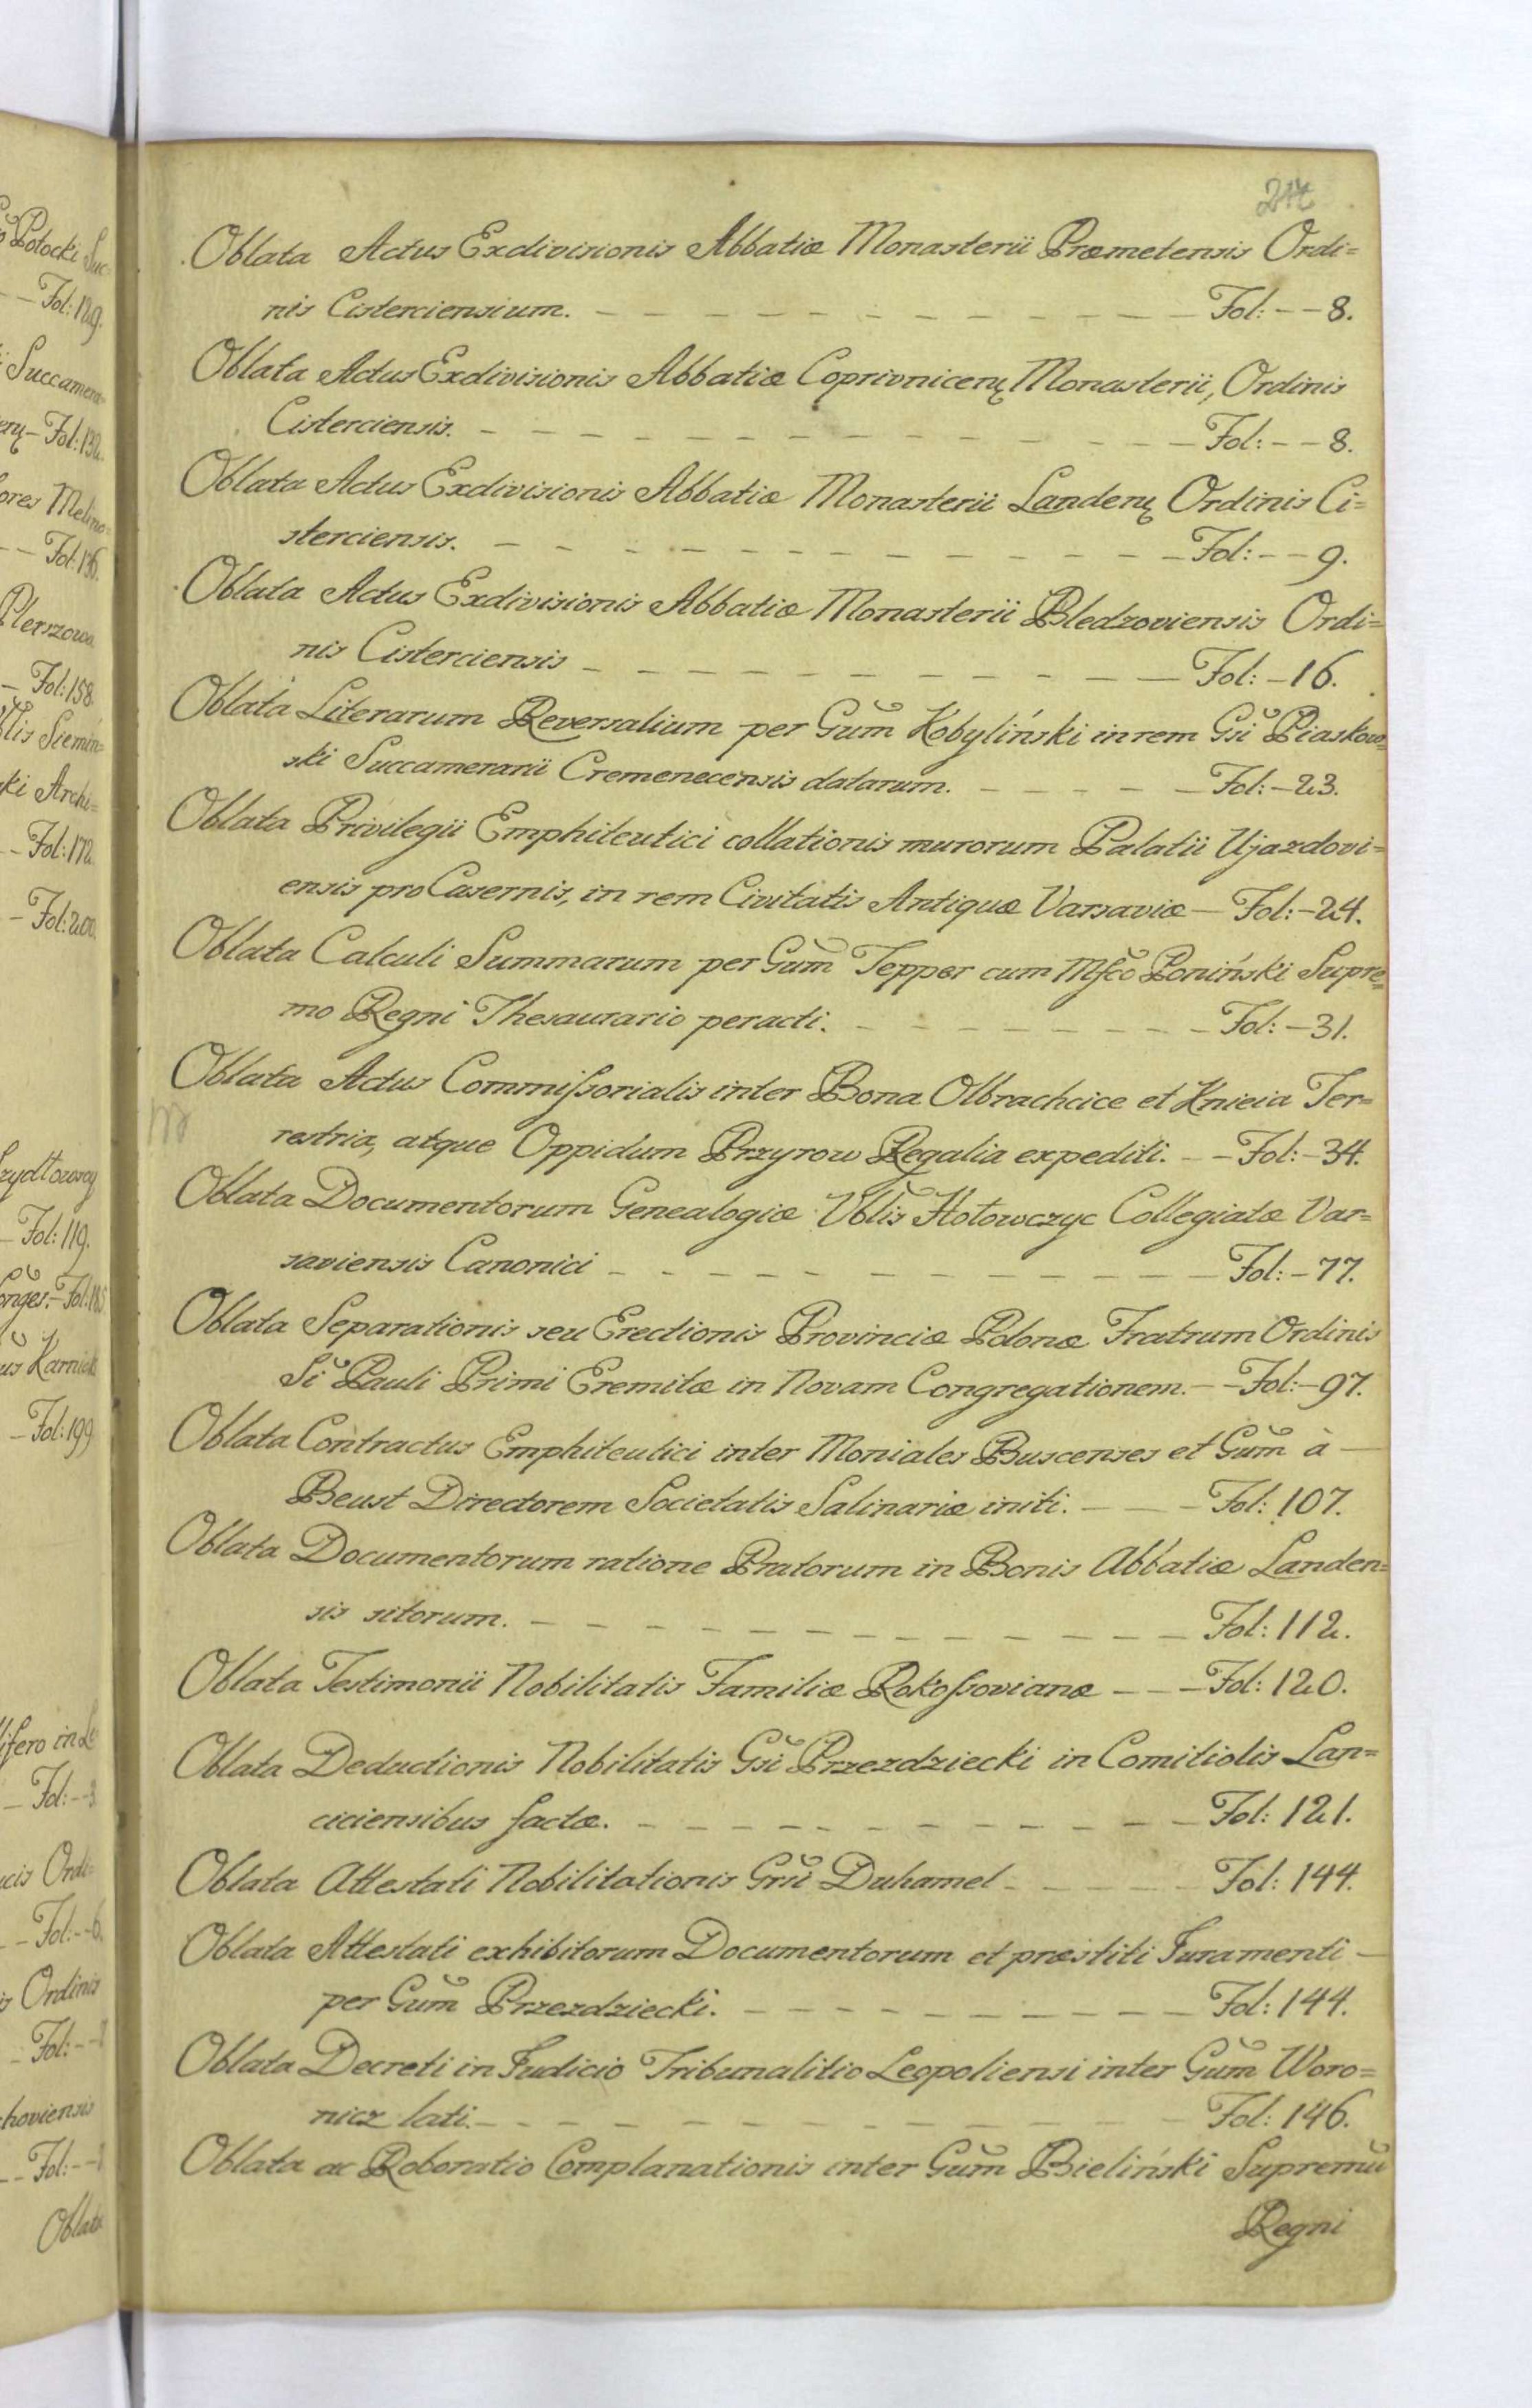 217
Oblata Actus Exdivisionis Abbatiæ Monasterii Præmetensis Ordi=
nis Cisterciensium. — — — — — — — — — — — — — Fol: — — 8.
Oblata Actus Exdivisionis Abbatiæ Coprivnicenꝫ Monasterii, Ordinis
Cisterciensis. — — — — — — — — — — — — — — — Fol: — — 8.
Oblata Actus Exdivisionis Abbatiæ Monasterii Landenꝫ Ordinis Ci=
sterciensis. — — — — — — — — — — — — — — — Fol: — — 9.
Oblata Actus Exdivisionis Abbatiæ Monasterii Bledzoviensis Ordi=
nis Cisterciensis — — — — — — — — — — — — — Fol: — 16.
Oblata Literarum Reversalium per Gum̃ Kobyliński in rem Gsi̇̃ Piaskow=
ski Succamerarii Cremenecensis datarum. — — — — — Fol: — 23.
Oblata Privilegii Emphiteutici collationis murorum Palatii Ujazdovi=
ensis pro Casernis, in rem Civitatis Antiquæ Varsaviæ — Fol: — 24.
Oblata Calculi Summarum per Gum̃ Tepper cum Mfcõ Poniński Supre=
mo Regni Thesaurario peracti. — — — — — — — — Fol: — 31.
Oblata Actus Commissorialis inter Bona Olbrachcice et Knieia Ter=
restria, atque Oppidum Przyrow Regalia expediti. — — Fol: — 34.
Oblata Documentorum Genealogiæ Vblis̃ Hołowczyc Collegiatæ Var=
saviensis Canonici — — — — — — — — — — — — — Fol: — 77.
Oblata Separationis seu Erectionis Provinciæ Polonæ Fratrum Ordinis
Si̇̃ Pauli Primi Eremitæ in Novam Congregationem. — — Fol: — 97.
Oblata Contractus Emphiteutici inter Moniales Buscenses et Gum̃ à —
Beust Directorem Societatis Salinariæ initi. — — — Fol: 107.
Oblata Documentorum ratione Pratorum in Bonis Abbatiæ Landen=
sis sitorum. — — — — — — — — — — — — — — Fol: 112.
Oblata Testimonii Nobilitatis Familiæ Rokossovianæ — — — Fol: 120.
Oblata Deductionis Nobilitatis Gsi̇̃ Przezdziecki in Comitiolis Lan=
ciciensibus factæ. — — — — — — — — — — — — Fol: 121.
Oblata Attestati Nobilitationis Grsi̇̃ Duhamel — — — — Fol: 144.
Oblata Attestati exhibitorum Documentorum et præstiti Juramenti —
per Gum̃ Przezdziecki. — — — — — — — — — — Fol: 144.
Oblata Decreti in Judicio Tribunalitio Leopoliensi inter Gum̃ Woro=
nicz lati. — — — — — — — — — — — — — — Fol: 146.
Oblata ac Roboratio Complanationis inter Gum̃ Bieliński Supremũ
Regni